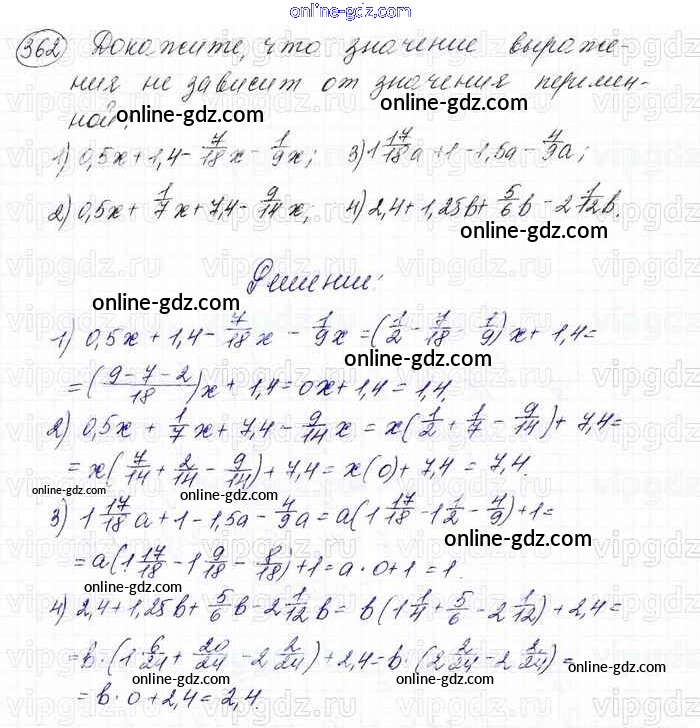 online-gdz.com
362 Докажите, что значение выраже-
ния не зависит от значения перемен-
ной.
online-gdz.com
1) 0,5x + 1,4 - 7/18 x - 1/9 x; 3) 1 17/18 a + 1 - 1,5a - 4/9 a;
2) 0,5x + 1/7 x + 7,4 - 9/14 x; 4) 2,4 + 1,25b + 5/6 b - 2 1/12 b.
online-gdz.com
Решение:
online-gdz.com
1) 0,5x + 1,4 - 7/18 x - 1/9 x = (1/2 - 7/18 - 1/9)x + 1,4 =
online-gdz.com
= ((9-7-2)/18)x + 1,4 = 0x + 1,4 = 1,4.
online-gdz.com
2) 0,5x + 1/7 x + 7,4 - 9/14 x = x(1/2 + 1/7 - 9/14) + 7,4 =
= x(7/14 + 2/14 - 9/14) + 7,4 = x(0) + 7,4 = 7,4.
online-gdz.com
online-gdz.com
3) 1 17/18 a + 1 - 1,5a - 4/9 a = a(1 17/18 - 1 1/2 - 4/9) + 1 =
online-gdz.com
= a(1 17/18 - 1 9/18 - 8/18) + 1 = a · 0 + 1 = 1.
online-gdz.com
4) 2,4 + 1,25b + 5/6 b - 2 1/12 b = b(1 1/4 + 5/6 - 2 1/12) + 2,4 =
online-gdz.com
= b · (1 6/24 + 20/24 - 2 2/24) + 2,4 = b · (2 2/24 - 2 2/24) =
online-gdz.com
online-gdz.com
= b · 0 + 2,4 = 2,4.
online-gdz.com